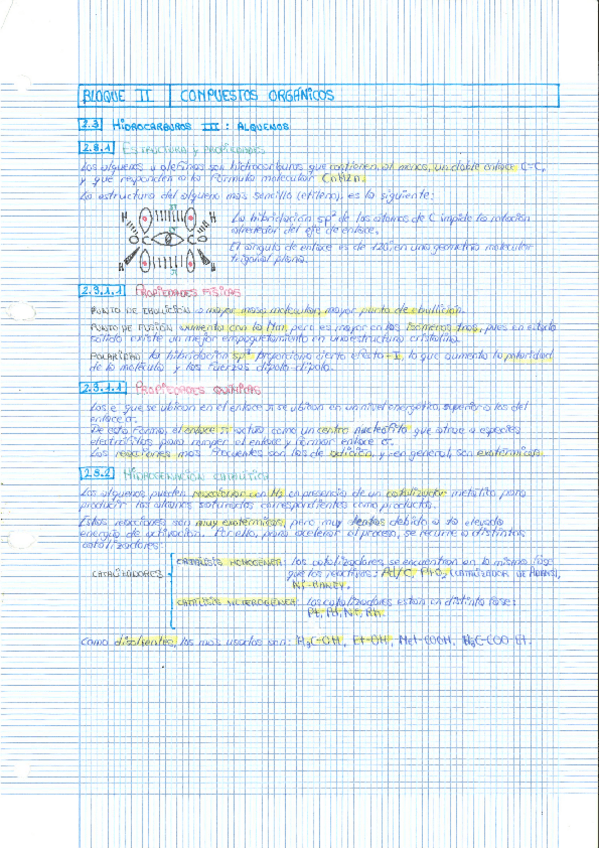 BLOQUE II COMPUESTOS ORGÁNICOS
2.3 HIDROCARBUROS III: ALQUENOS
2.3.1 ESTRUCTURA Y PROPIEDADES
Los alquenos u olefinas son hidrocarburos que contienen, al menos, un doble enlace C=C,
y que responden a la fórmula molecular CnH2n.
La estructura del alqueno más sencillo (etileno), es la siguiente:
H π H
C C
H π H
La hibridación sp² de los átomos de C impide la rotación
alrededor del eje de enlace.
El ángulo de enlace es de 120°, en una geometría molecular
trigonal plana.
2.3.1.1 PROPIEDADES FÍSICAS
PUNTO DE EBULLICIÓN a mayor masa molecular, mayor punto de ebullición.
PUNTO DE FUSIÓN aumenta con la Mm, pero es mayor en los isómeros trans, pues en estado
sólido existe un mejor empaquetamiento en una estructura cristalina.
POLARIDAD la hibridación sp² proporciona cierto efecto -I, lo que aumenta la polaridad
de la molécula y las fuerzas dipolo-dipolo.
2.3.1.1 PROPIEDADES QUÍMICAS
Los e⁻ que se ubican en el enlace π se ubican en un nivel energético superior a los del
enlace σ.
De esta forma, el enlace π actúa como un centro nucleófilo que atrae a especies
electrófilas para romper el enlace y formar enlace σ.
Las reacciones más frecuentes son las de adición, y, en general, son exotérmicas.
2.3.2 HIDROGENACIÓN CATALÍTICA
Los alquenos pueden reaccionar con H₂ en presencia de un catalizador metálico para
producir los alcanos saturados correspondientes como productos.
Estas reacciones son muy exotérmicas, pero muy lentas debido a la elevada
energía de activación. Por ello, para acelerar el proceso, se recurre a distintos
catalizadores:
CATALIZADORES
CATÁLISIS HOMOGÉNEA: los catalizadores se encuentran en la misma fase
que los reactivos: Pd/C, PtO₂ (CATALIZADOR DE ADAMS),
Ni-RANEY.
CATÁLISIS HETEROGÉNEA: los catalizadores están en distinta fase:
Pt, Pd, Ni, Rh.
Como disolventes, los más usados son: H₃C-OH, Et-OH, Met-COOH, H₃C-COO-Et.